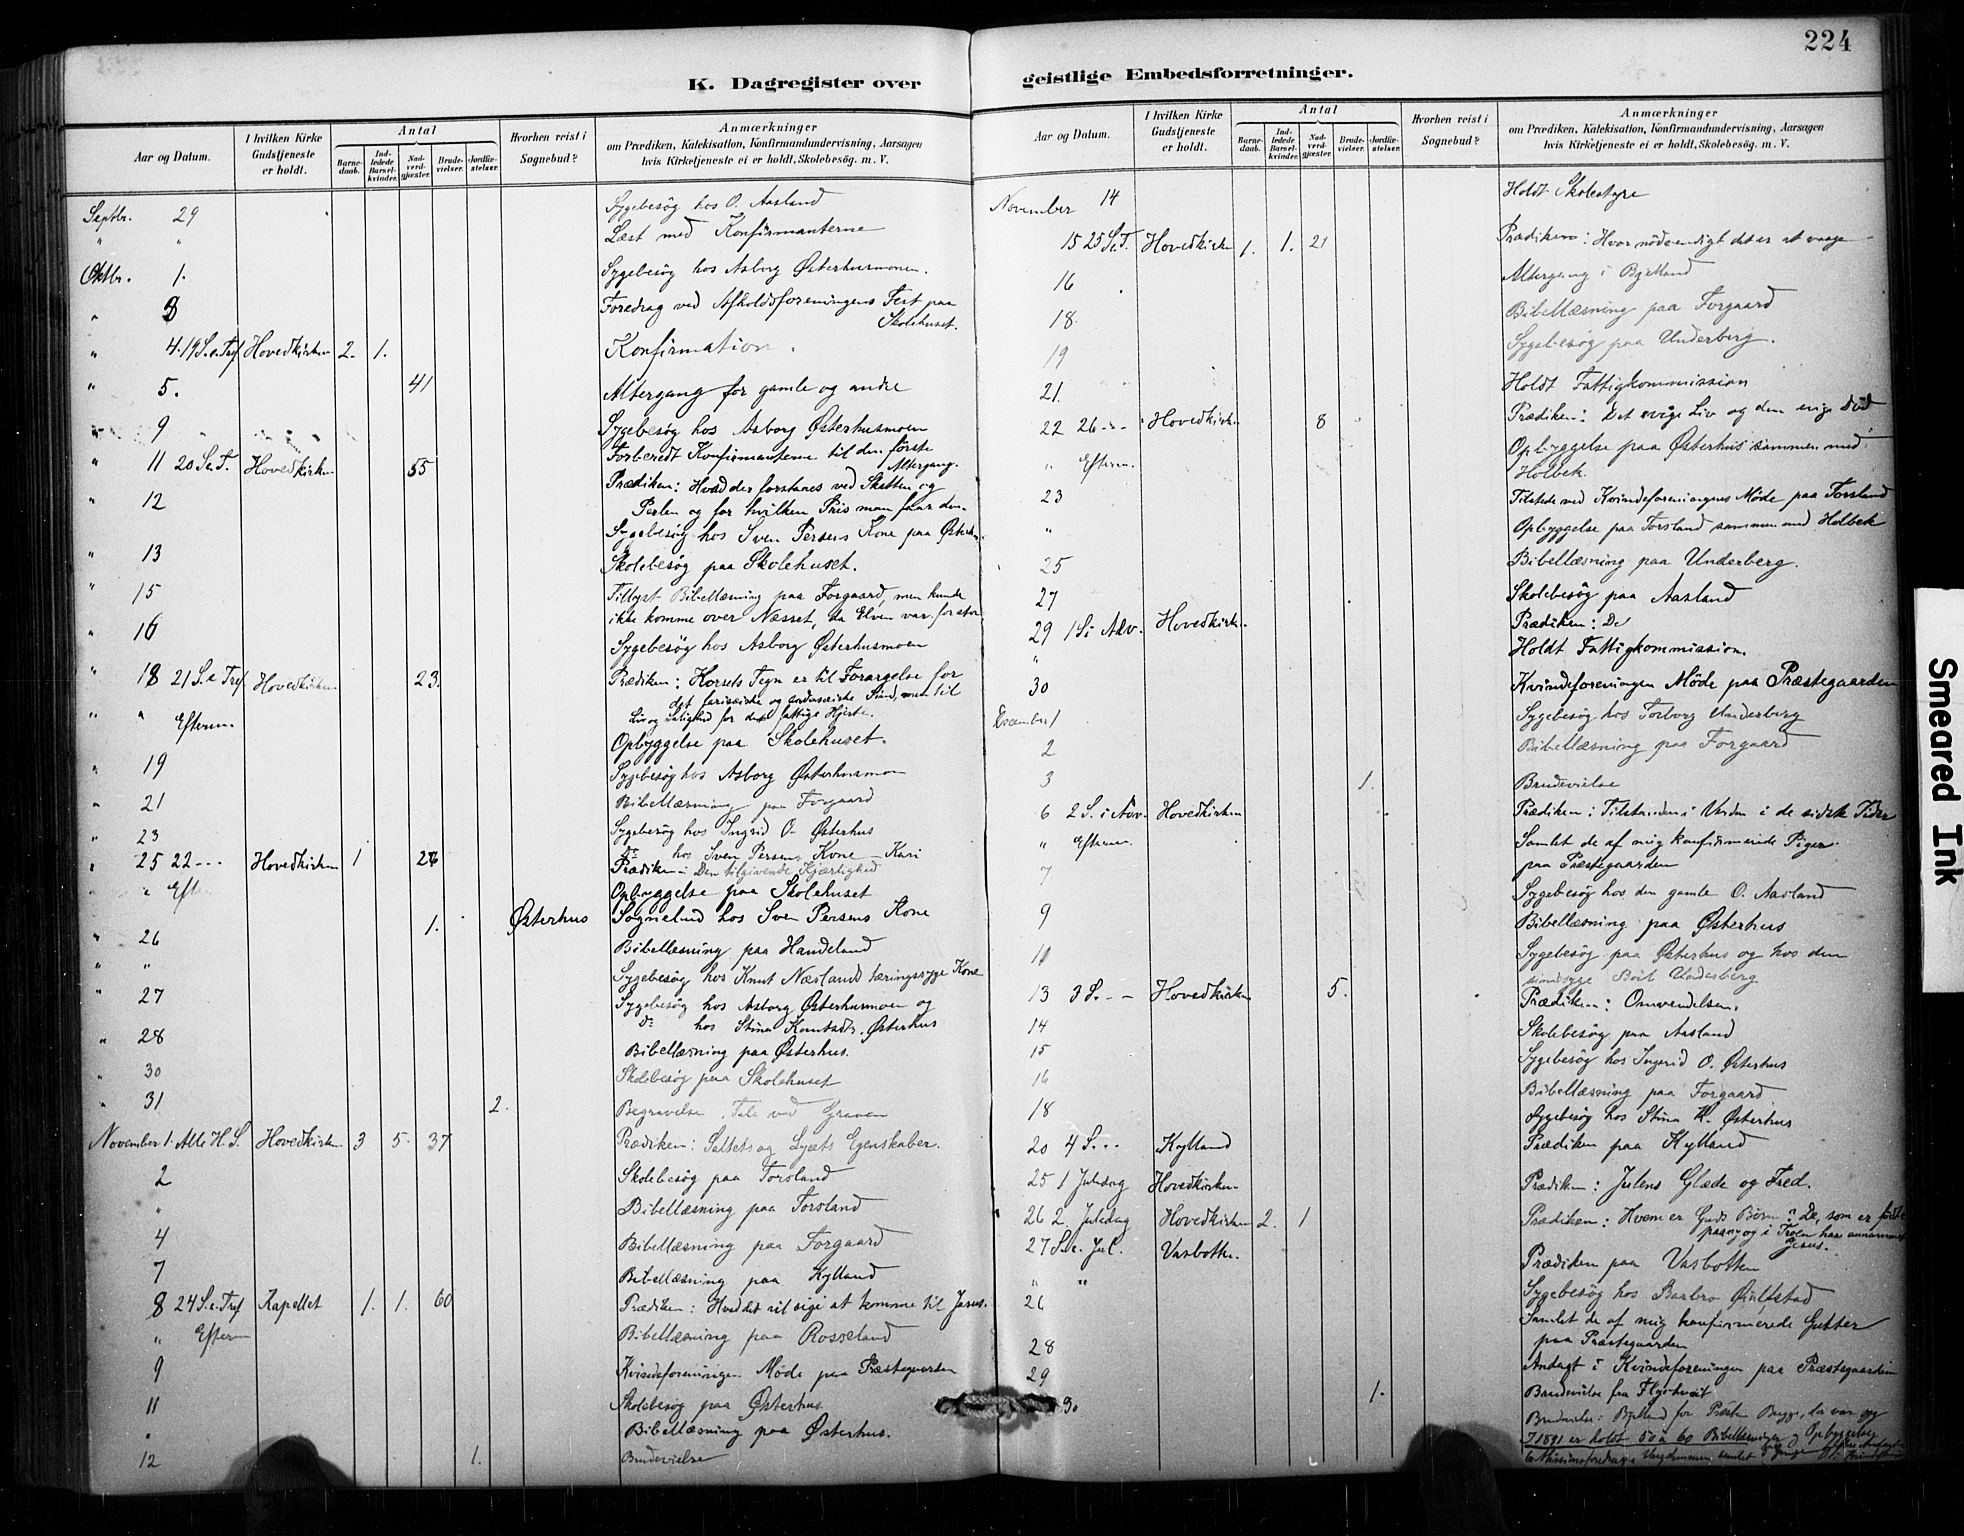 224
K. Dagregister over geistlige Embedsforretninger.
Aar og Datum.
I hvilken Kirke Gudstjeneste er holdt.
Antal
Barnedaab.
Indledede Barselkvinder.
Nadverdgjæster.
Brudevielser.
Jordfæstelser.
Hvorhen reist i Sognebud?
Anmærkninger
om Prædiken, Katekisation, Konfirmandundervisning, Aarsagen
hvis Kirketjeneste ei er holdt, Skolebesøg. m. V.
Septbr. 29 Sygebesøg hos O. Aasland
" " Læst med Konfirmanterne
Oktbr. 1. Sygebesøg hos Asborg Østerhusmoen.
" 3 Foredrag ved Afholdsforeningens Fest paa
Skolehuset.
" 4. 19 S. e. Tref Hovedkirken 2. 1. Konfirmation.
" 5. 41 Altergang for gamle og andre
" 9 Sygebesøg hos Asborg Østerhusmoen
Forberedt Konfirmanterne til den første
Altergang.
" 11 20 S. e. T. Hovedkirken 55 Prædiken: Hvad der forstaaes ved Skatten og
Perlen og for hvilken Pris man faar den.
" 12 Sygebesøg hos Sven Persens Kone paa Østerh.
" 13 Skolebesøg paa Skolehuset.
" 15 Tillyst Bibellæsning paa Forgaard, men kunde
ikke komme over Næsset, da Elven var for stor
" 16 Sygebesøg hos Asborg Østerhusmoen
" 18 21 S. e. Tref Hovedkirken 23. Prædiken: Korsets Tegn er til Forargelse for
det farisæiske og sadusæiske Sind, men til
Liv og Salighed for det fattige Hjerte.
" " Efterm. Opbyggelse paa Skolehuset.
" 19 Sygebesøg hos Asborg Østerhusmoen
" 21 Bibellæsning paa Forgaard
" 23 Sygebesøg hos Ingrid O. Østerhus
Do hos Sven Persens Kone Kari
" 25 22 - - - Hovedkirken 1 26 Prædiken: Den tilgivende Kjærlighed
" " Eft Opbyggelse paa Skolehuset
1. Østerhus Sognebud hos Sven Persens Kone
" 26 Bibellæsning paa Handeland
" " Sygebesøg hos Knut Næslands tæringssyge Kone
" 27 Sygebesøg hos Asborg Østerhusmoen og
Do hos Stina Knutsdtr. Østerhus
" 28 Bibellæsning paa Østerhus.
" 30 Skolebesøg paa Skolehuset
" 31 2. Begravelse. Tale ved Graven
November 1. Alle H. S. Hovedkirken 3 5. 37 Prædiken: Saltets og Lysets Egenskaber.
2 Skolebesøg paa Torsland
" Bibellæsning paa Torsland
4 Bibellæsning paa Forgaard
7 Bibellæsning paa Kylland
8 24 S. e. Tref Kapellet 1. 1. 60 Prædiken: Hvad det vil sige at komme til Jesus.
" Efterm Bibellæsning paa Rosseland
9 Kvindeforeningen Møde paa Præstegaarden
11 Skolebesøg paa Østerhus
" Bibellæsning paa Østerhus.
12 1. Brudevielse
Aar og Datum.
I hvilken Kirke Gudstjeneste er holdt.
Antal
Barnedaab.
Indledede Barselkvinder.
Nadverdgjæster.
Brudevielser.
Jordfæstelser.
Hvorhen reist i Sognebud?
Anmærkninger
om Prædiken, Katekisation, Konfirmandundervisning, Aarsagen
hvis Kirketjeneste ei er holdt, Skolebesøg. m. V.
November 14 Holdt Skolestyre
15 25 S. e. T. Hovedkirken 1. 1. 21 Prædiken: Hvor nødvendigt det er at vaage
16 Altergang i Bjelland
18. Bibellæsning paa Forgaard
19 Sygebesøg paa Underberg.
21. Holdt Fattigkommission
22 26 - - - Hovedkirken 8 Prædiken: Det evige Liv og den evige Død
" Efterm. Opbyggelse paa Østerhus sammen med
Holbek.
23 Tilstede ved Kvindeforeningens Møde paa Torsland
" Opbyggelse paa Torsland sammen med Holbek
25 Bibellæsning paa Underberg.
27 Skolebesøg paa Aasland
29 1 S. i Adv. Hovedkirken Prædiken: De
" Holdt Fattigkommission.
30 Kvindeforeningen Møde paa Præstegaarden
December 1 Sygebesøg hos Torborg Underberg
2 Bibellæsning paa Forgaard
3 1. Brudevielse
6 2 S. i Adv. Hovedkirken Prædiken: Tilstanden i Verden i de sidste Tider
" Efterm. Samlet de af mig konfirmerede Piger
paa Præstegaarden
7 Sygebesøg hos den gamle O. Aasland
9 Bibellæsning paa Østerhus
10 Sygebesøg paa Østerhus og hos den
sindsyge Underberg
13 3 S. - - Hovedkirken 5. Prædiken: Omvendelsen.
14 Skolebesøg paa Aasland
15 Sygebesøg hos Ingerid O. Østerhus
16 Bibellæsning paa Forgaard
18 Sygebesøg hos Stina K. Østerhus
20 4 S. - - Kylland Prædiken paa Kylland
25 1 Juledag Hovedkirken Prædiken: Julens Glæde og Fred.
26 2. Juledag Hovedkirken 2. 1 Prædiken: Hvem er Guds Børn? De, som er fødte
paany og i Troen har annammet
Jesus.
27 S. e. Jul. Vasbotten. Prædiken paa Vasbotten
" " Sygebesøg hos Barbro
26 Samlet de af mig konfirmerede Gutter
paa Præstegaarden
28
29 Andagt i Kvindeforeningen paa Præstegaarden
30 1. Brudevielse fra
Bjelland for Præsten
I 1891 er holdt 50 à 60 Bibellæsninger og Opbyggelser
6 Missionsforedrag
Smeared Ink